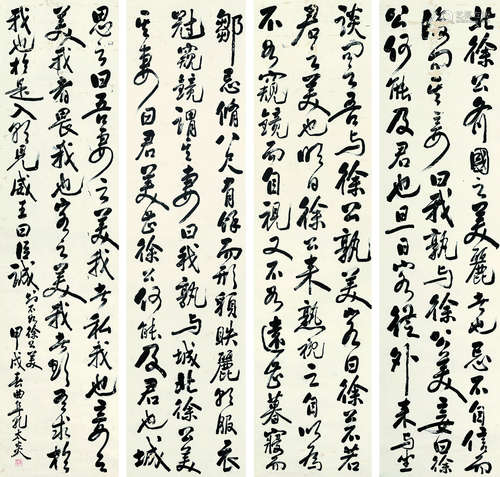 鄒忌脩八尺有餘而形貌昳麗朝服衣
冠窺鏡謂其妻曰我孰與城北徐公美
其妻曰君美甚徐公何能及君也城
北徐公齊國之美麗者也忌不自信而
復問其妾曰我孰與徐公美妾曰徐
公何能及君也旦日客從外來與坐
談問之吾與徐公孰美客曰徐公不若
君之美也明日徐公來熟視之自以為
不如窺鏡而自視又不如遠甚暮寢而
思之曰吾妻之美我者私我也妾之
美我者畏我也客之美我者欲有求於
我也於是入朝見威王曰臣誠知不如徐公美
甲戌春曲阜孔太炎